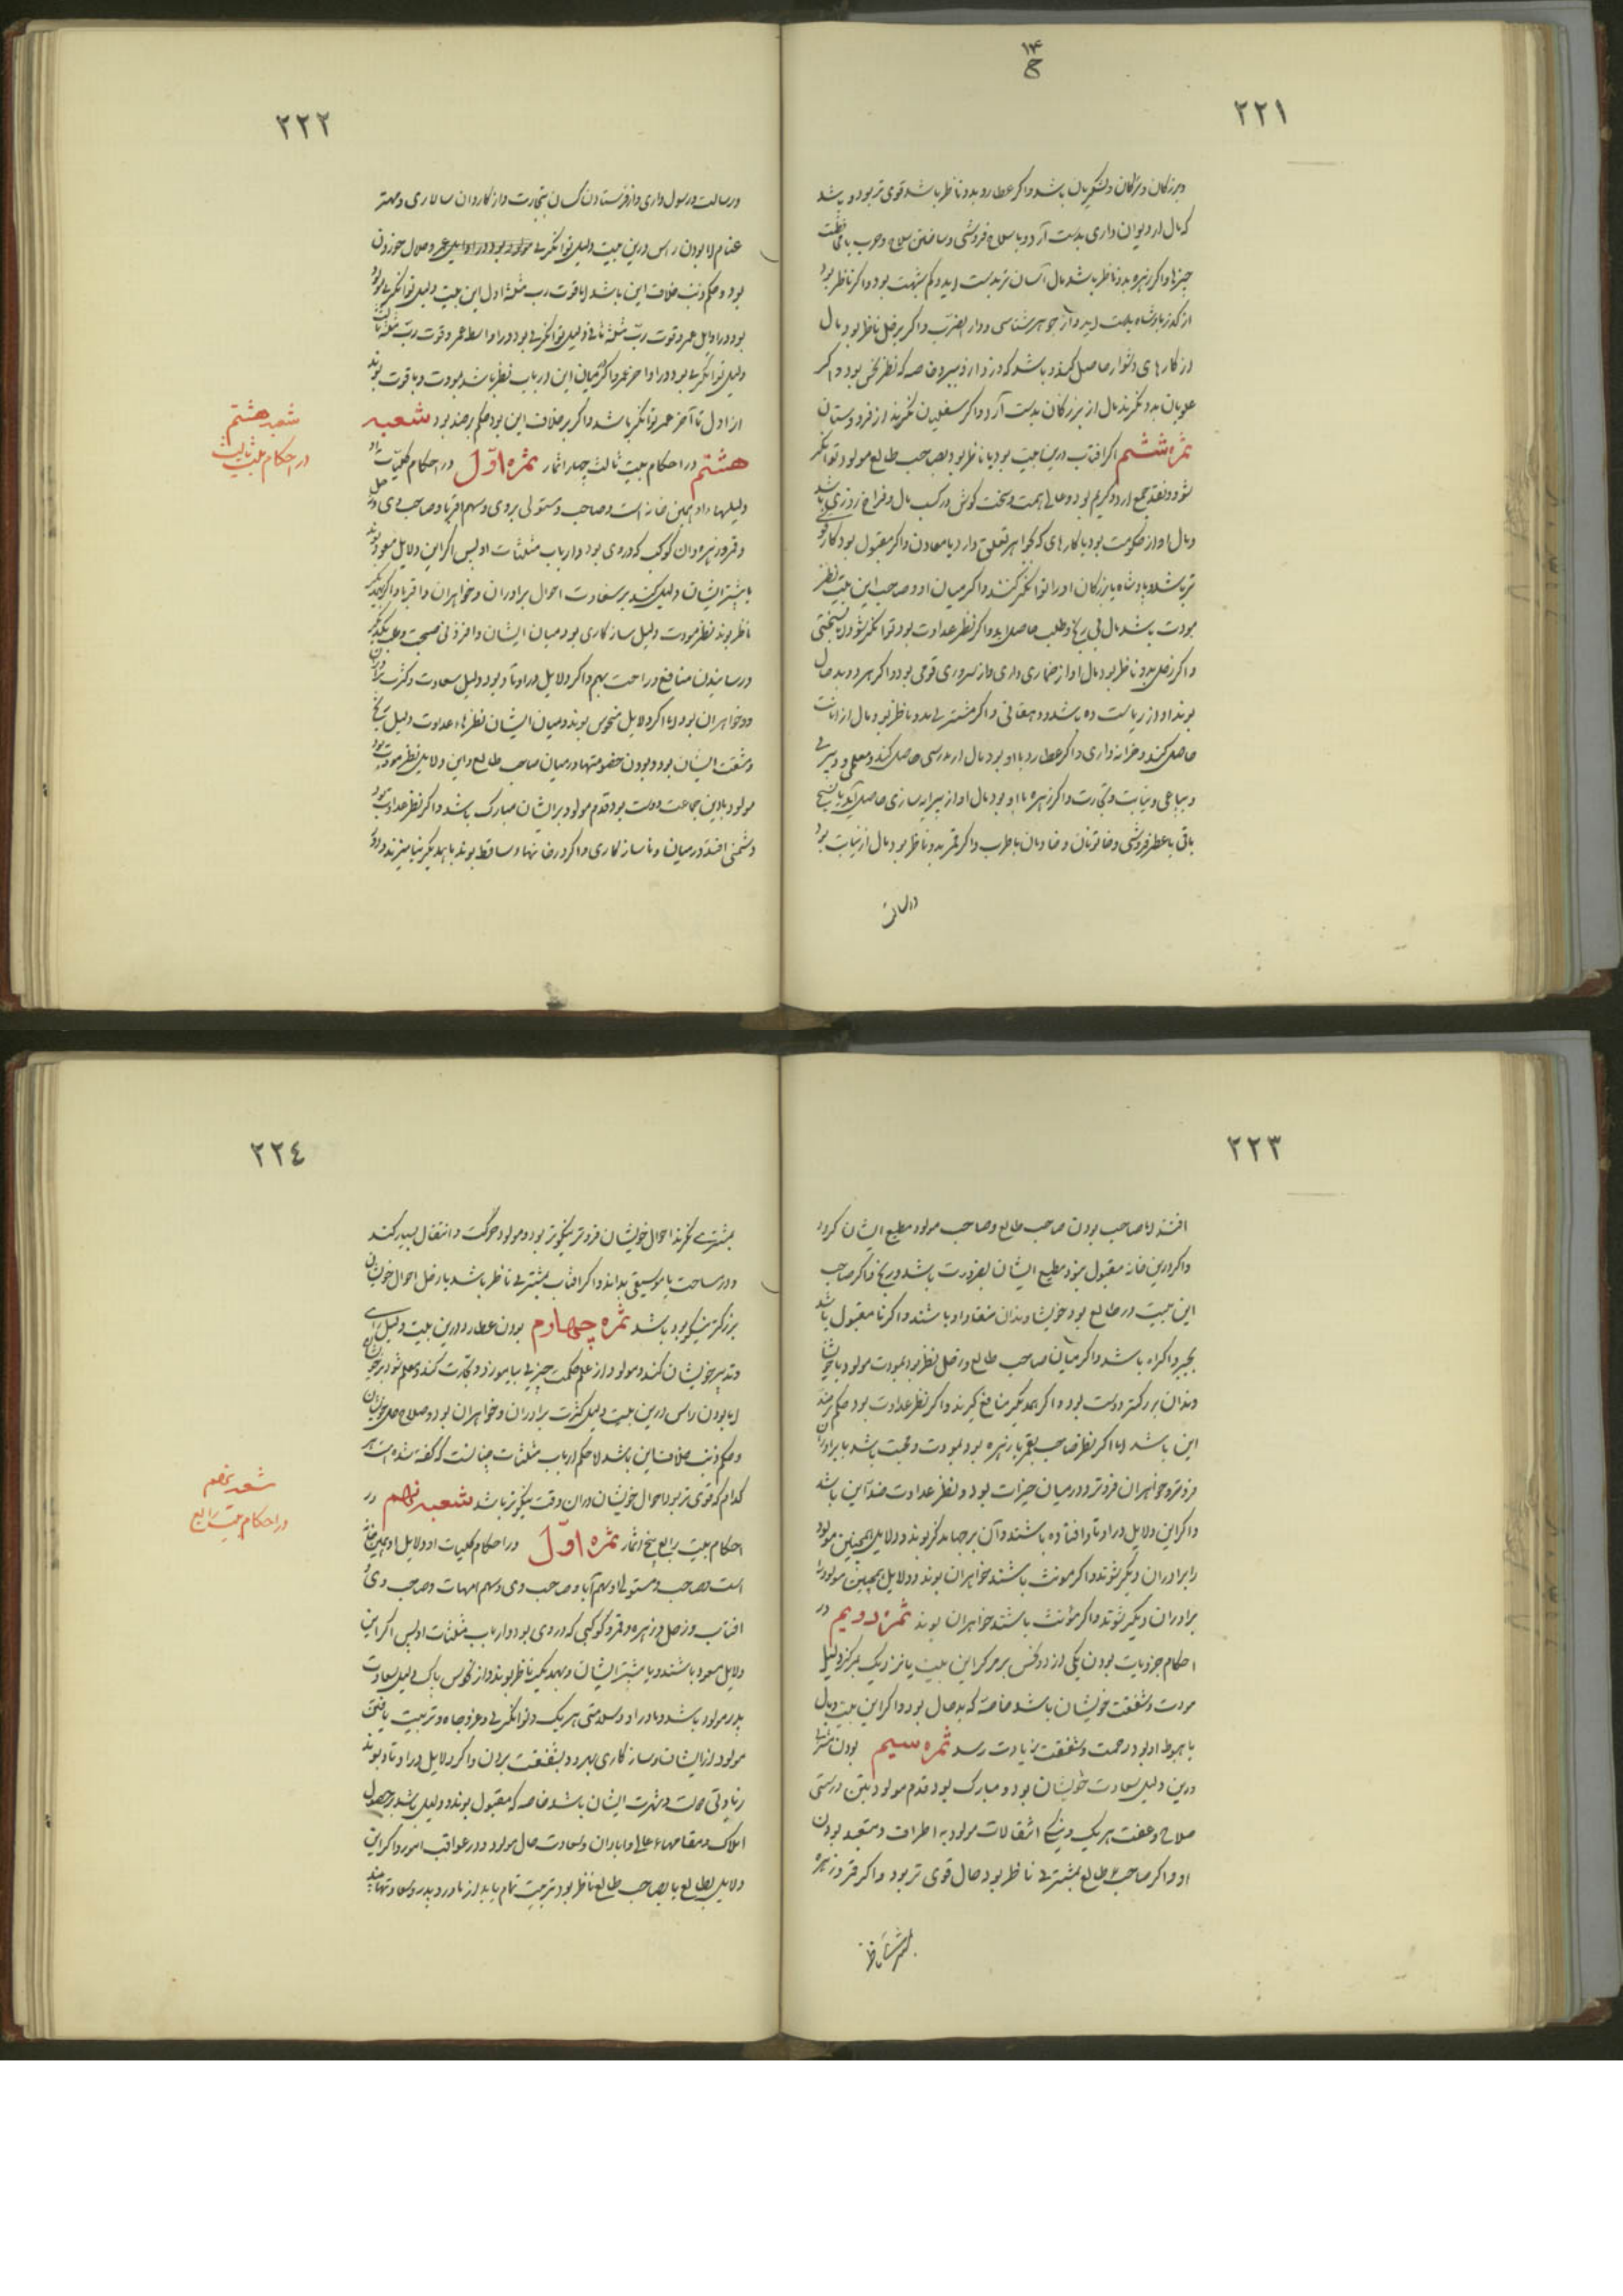 ١٤
ح
٢٢١
و بزرکان و ترکان و لشکریان باشد و اکر عطارد بدو ناظر باشد قوی تر بود و باشد
که مال از دیوان داری بدست آرد و با سلاح فروشی و ساختن سلاح و حرب یا
چیزها و اکر زهره بدو ناظر باشد مال آسان تر بدست اید و کم شبهت بود و اکر ناظر بود
از کدر پادشاه بدست اید و از جوهر شناسی و دار الضرب و اکر بزحل ناظر بود مال
از کارهای دشوار حاصل کند و باشد که دزدان از و ببرند خاصه که نظر نحس بود و اکر
علویان بدو نکرند مال از بزرکان بدست آرد و اکر سفلیان نکرند از فرودستان
ثمره ششم اکر افتاب درین بیت بود یا ناظر بود بصاحب طالع مولود توانکر
شود و نقد جمع ارد و کریم بود و عالی همت و سخت کوش در کسب مال و فراخ روزی باشد
و مال او از حکومت بود یا کارهای که بجواهر تعلق دارد یا معادن و اکر مقبول بود کار او قوی
تر باشد و پادشاه یا بزرکان او را توانکر کنند و اکر میان او و صاحب این بیت نظر
مودت باشد مال بی رنج و طلب حاصل اید و اکر نظر عداوت بود توانکر شود بسختی
و اکر زحل بدو ناظر بود مال او از ضماری داری و از سروری قومی بود و اکر هر دو بد حال
بوند او از ریاست ده باشد و دهقانی و اکر مشتری بدو ناظر بود مال از امانت
حاصل کند و خزانه داری و اکر عطارد با او بود مال از مدرسی حاصل کند و معلمی و دبیری
و بیاعی و نیابت و تجارت و اکر زهره با او بود مال او از پیرایه سازی حاصل آید یا نساجی
باقی یا عطر فروشی و خاتونان و خادمان یا طرب و اکر قمر بدو ناظر بود مال از نیابت بود
و رسالت
٢٢٢
و رسالت و رسول داری و از فرستادن کسان بتجارت و از کاروان سالاری و مهتر
غنام اما بودن راس درین بیت دلیل توانکری مولود بود در اوایل عمر و حلال خوردن
بود و حکم ذنب خلاف این باشد اما قوت رب مثلثه اول این بیت دلیل توانکری بود
بود در اوایل عمر و قوت رب مثلثه ثانی دلیل توانکری بود در اواسط عمر و قوت رب مثلثه ثالث
دلیل توانکری بود در اواخر عمر و اکر میان این ارباب نظر باشد بمودت و با قوت بوند
از اول تا آخر عمر توانکر باشد و اکر برخلاف این بود حکم بر ضد بود شعبه
هشتم در احکام بیت ثالث چهار اثمار ثمره اول در احکام کلیات او
دلیلهاء او همین خانه است و صاحب و مستولی بر وی و سهم اقربا و صاحب وی و زحل
و قمر و زهره و ان کوکب که در وی بود و ارباب مثلثات او پس اکر این دلایل مسعود بوند
یا بیشتر ایشان دلیل کند بر سعادت احوال برادران و خواهران و اقربا و اکر بیکدیکر
ناظر بوند بنظر مودت دلیل سازکاری بود میان ایشان و افزونی صحبت و بر یکدیکر
و رسانیدن منافع و راحت بهم و اکر دلایل در اوتاد بود دلیل سعادت و کثرت برادران
و خواهران بود اما اکر دلایل منحوس بوند و میان ایشان نظرهاء عداوت دلیل رنج
و مشقت ایشان بود و بودن خصومتها و در میان صاحب طالع و این دلایل نظر مودت بود
مولود با این جماعت دوست بود قدم مولود بر ایشان مبارک باشد و اکر نظر عداوت بود
دشمنی افتد در میان و ناسازکاری و اکر در خانهاء ساقط بوند با یکدیکر نیامیزند و دور
شعبه هشتم
در احکام بیت ثالث
٢٢٣
افتند اما صاحب بودن صاحب طالع و صاحب مولود مطیع ایشان کردد
و اکر درین خانه مقبول بود مطیع ایشان بضرورت باشد و رنج و اکر صاحب
این بیت در طالع بود خویشاوندان منقاد او باشند و اکر نا مقبول باشد
بجبر و اکراه باشد و اکر میان صاحب طالع و زحل نظر بود بمودت مولود با خویشا
وندان بزرکتر دوست بود و اکر از یکدیکر منافع کیرند و اکر نظر عداوت بود حکم بر ضد
این باشد اما اکر نظر صاحب بقمر یا زهره بود بمودت و محبت باشد با برادران
فروتر و خواهران فروتر و در میان خیرات بود و نظر عداوت ضد آین باشد
و اکر این دلایل در اوتاد افتاده باشند و آن برجها مذکر بوند و دلایل همچنین مولود
را برادران دیکر شوند و اکر مونث باشند خواهران بوند و دلایل همچنین مولود را
برادران دیکر شوند و اکر مؤنث باشند خواهران بوند ثمره دویم در
احکام جزویات بودن یکی از دو نحس بر مرکز این بیت یا نزدیک بمرکز دلیل
مودت و شفقت خویشان باشد خاصه که بد حال بود و اکر این بیت وبال
یا هبوط او بود رحمت و شفقت زیادت رسد ثمره سیم بودن مشتری
درین دلیل سعادت خویشان بود و مبارک بود قدم مولود بتن درستی
صلاح و عفت هر یک و نیکی انتقالات مولود به اطراف و متعبد بودن
او و اکر صاحب طالع بمشتری ناظر بود حال قوی تر بود و اکر قمر و زهره
بمشتری ناظر
٢٢٤
بمشتری نکرند احوال خویشان فروتر نیکوتر بود و مولود حرکت و انتقال بسیار کند
و در مساحت یا موسیقی بداند و اکر افتاب بمشتری ناظر باشد یا زحل احوال خویشان
بزرکتر نیکو بود باشد ثمره چهارم بودن عطارد درین بیت دلیل رای
و تدبیر خویشان کند و مولود از علم حکمت چیزی بیاموزد و تجارت کند و معلم شود بر خویشان
اما بودن راس درین بیت دلیل کثرت برادران و خواهران بود و صلاح حال خویشان
و حکم ذنب خلاف این باشد اما حکم ارباب مثلثات چنانست که کفته شده است هر
کدام که قوی تر بود احوال خویشان دران وقت نیکوتر باشد شعبه نهم در
احکام بیت رابع پنج اثمار ثمره اول در احکام کلیات او دلایل او همین خانه
است و صاحب و مستولی او سهم آبا و صاحب وی و سهم امهات و صاحب وی و
افتاب و زحل و زهره و قمر و کوکبی که در وی بود و ارباب مثلثات او پس اکر این
دلایل مسعود باشند و یا بیشتر ایشان و بیکدیکر ناظر بوند و از نحوس پاک دلیل سعادت
پدر مولود باشد و مادر او و سلامتی هر یک و توانکری و عز و جاه و تربیت یافتن
مولود از ایشان و سازکاری بهر دو و بشفقت بردن و اکر دلایل در اوتاد بوند
زیادتی دولت و شهرت ایشان باشد خاصه که مقبول بوند و دلیل باشد بر حصول
املاک و مقامهاء عالی و ابادان و سعادت حال مولود و در عواقب امور و اکر این
دلایل بطالع یا بصاحب طالع ناظر بود تربیت تمام یابد از مادر و پدر و سعادتها بیند
شعبه نهم
در احکام بیت رابع